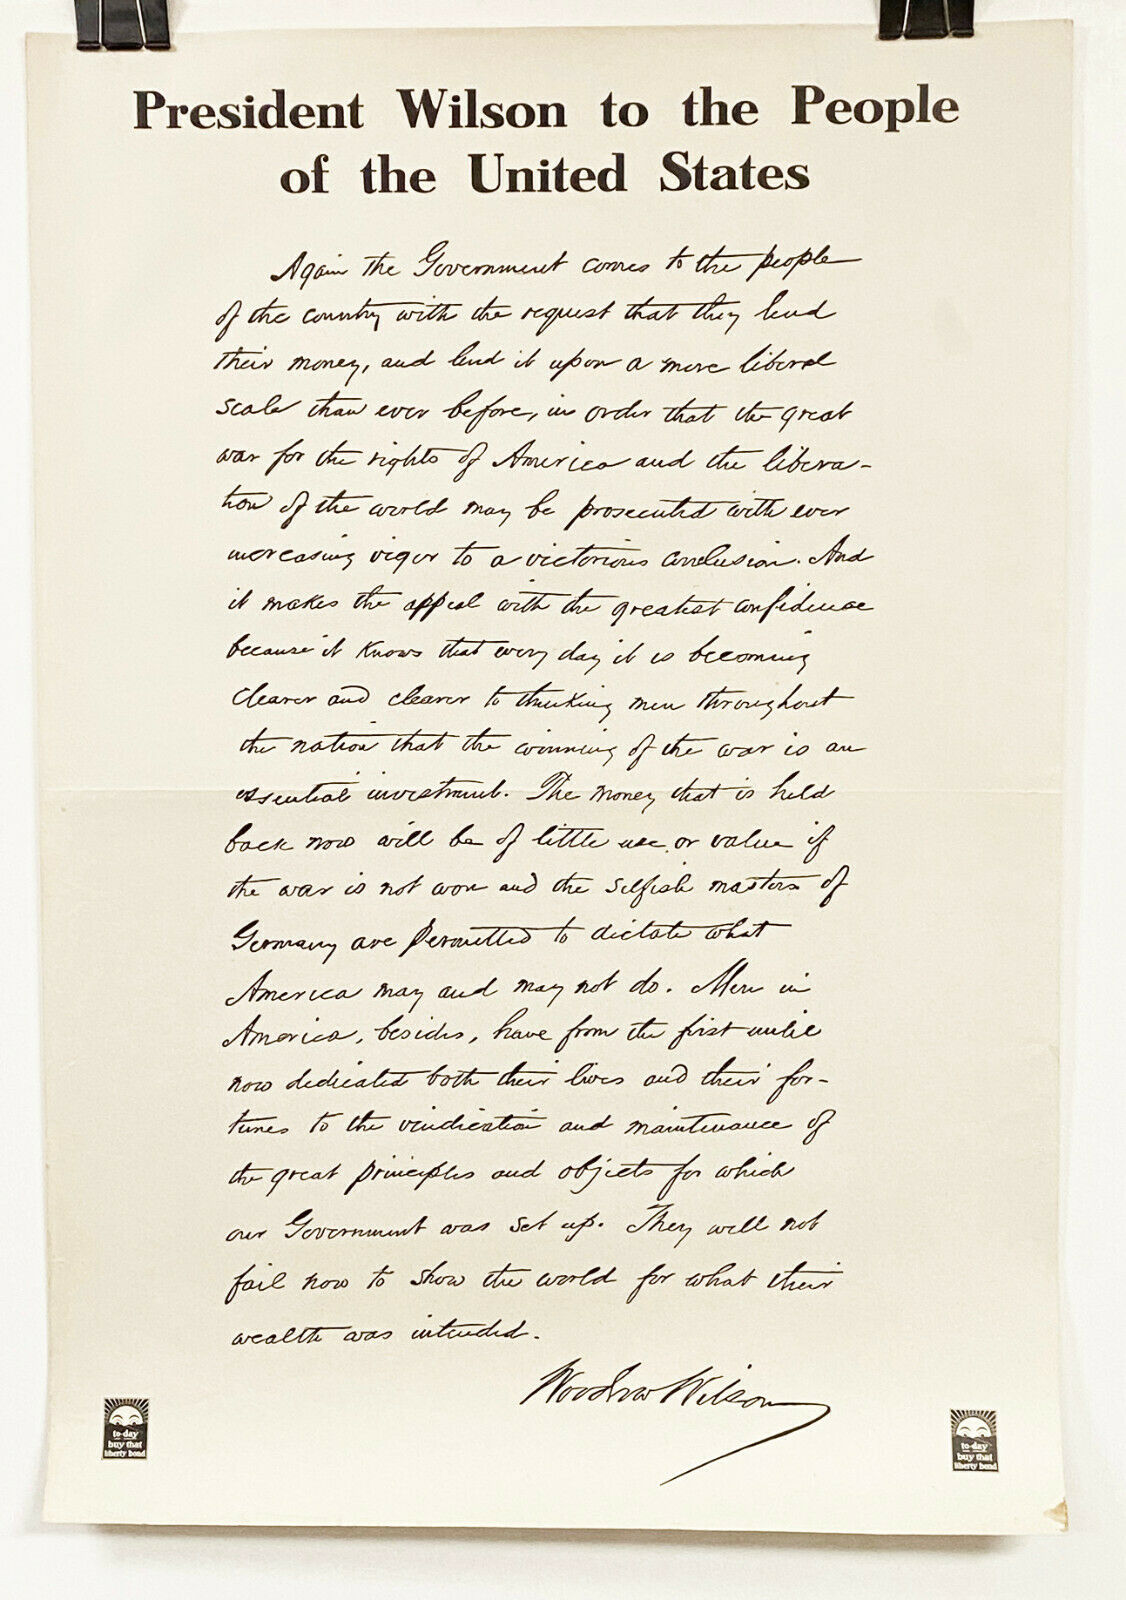 President Wilson to the People
of the United States
Again the Government comes to the people
of the country with the request that they lend
their money, and lend it upon a more liberal
scale than ever before, in order that the great
war for the rights of America and the libera-
tion of the world may be prosecuted with ever
increasing vigor to a victorious conclusion. And
it makes the appeal with the greatest confidence
because it knows that every day it is becoming
clearer and clearer to thinking men throughout
the nation that the winning of the war is an
essential investment. The money that is held
back now will be of little use or value if
the war is not won and the selfish masters of
Germany are permitted to dictate what
America may and may not do. Men in
America, besides, have from the first until
now dedicated both their lives and their for-
tunes to the vindication and maintenance of
the great principles and objects for which
our Government was set up. They will not
fail now to show the world for what their
wealth was intended.
Woodrow Wilson
to-day
buy that
liberty bond
to-day
buy that
liberty bond